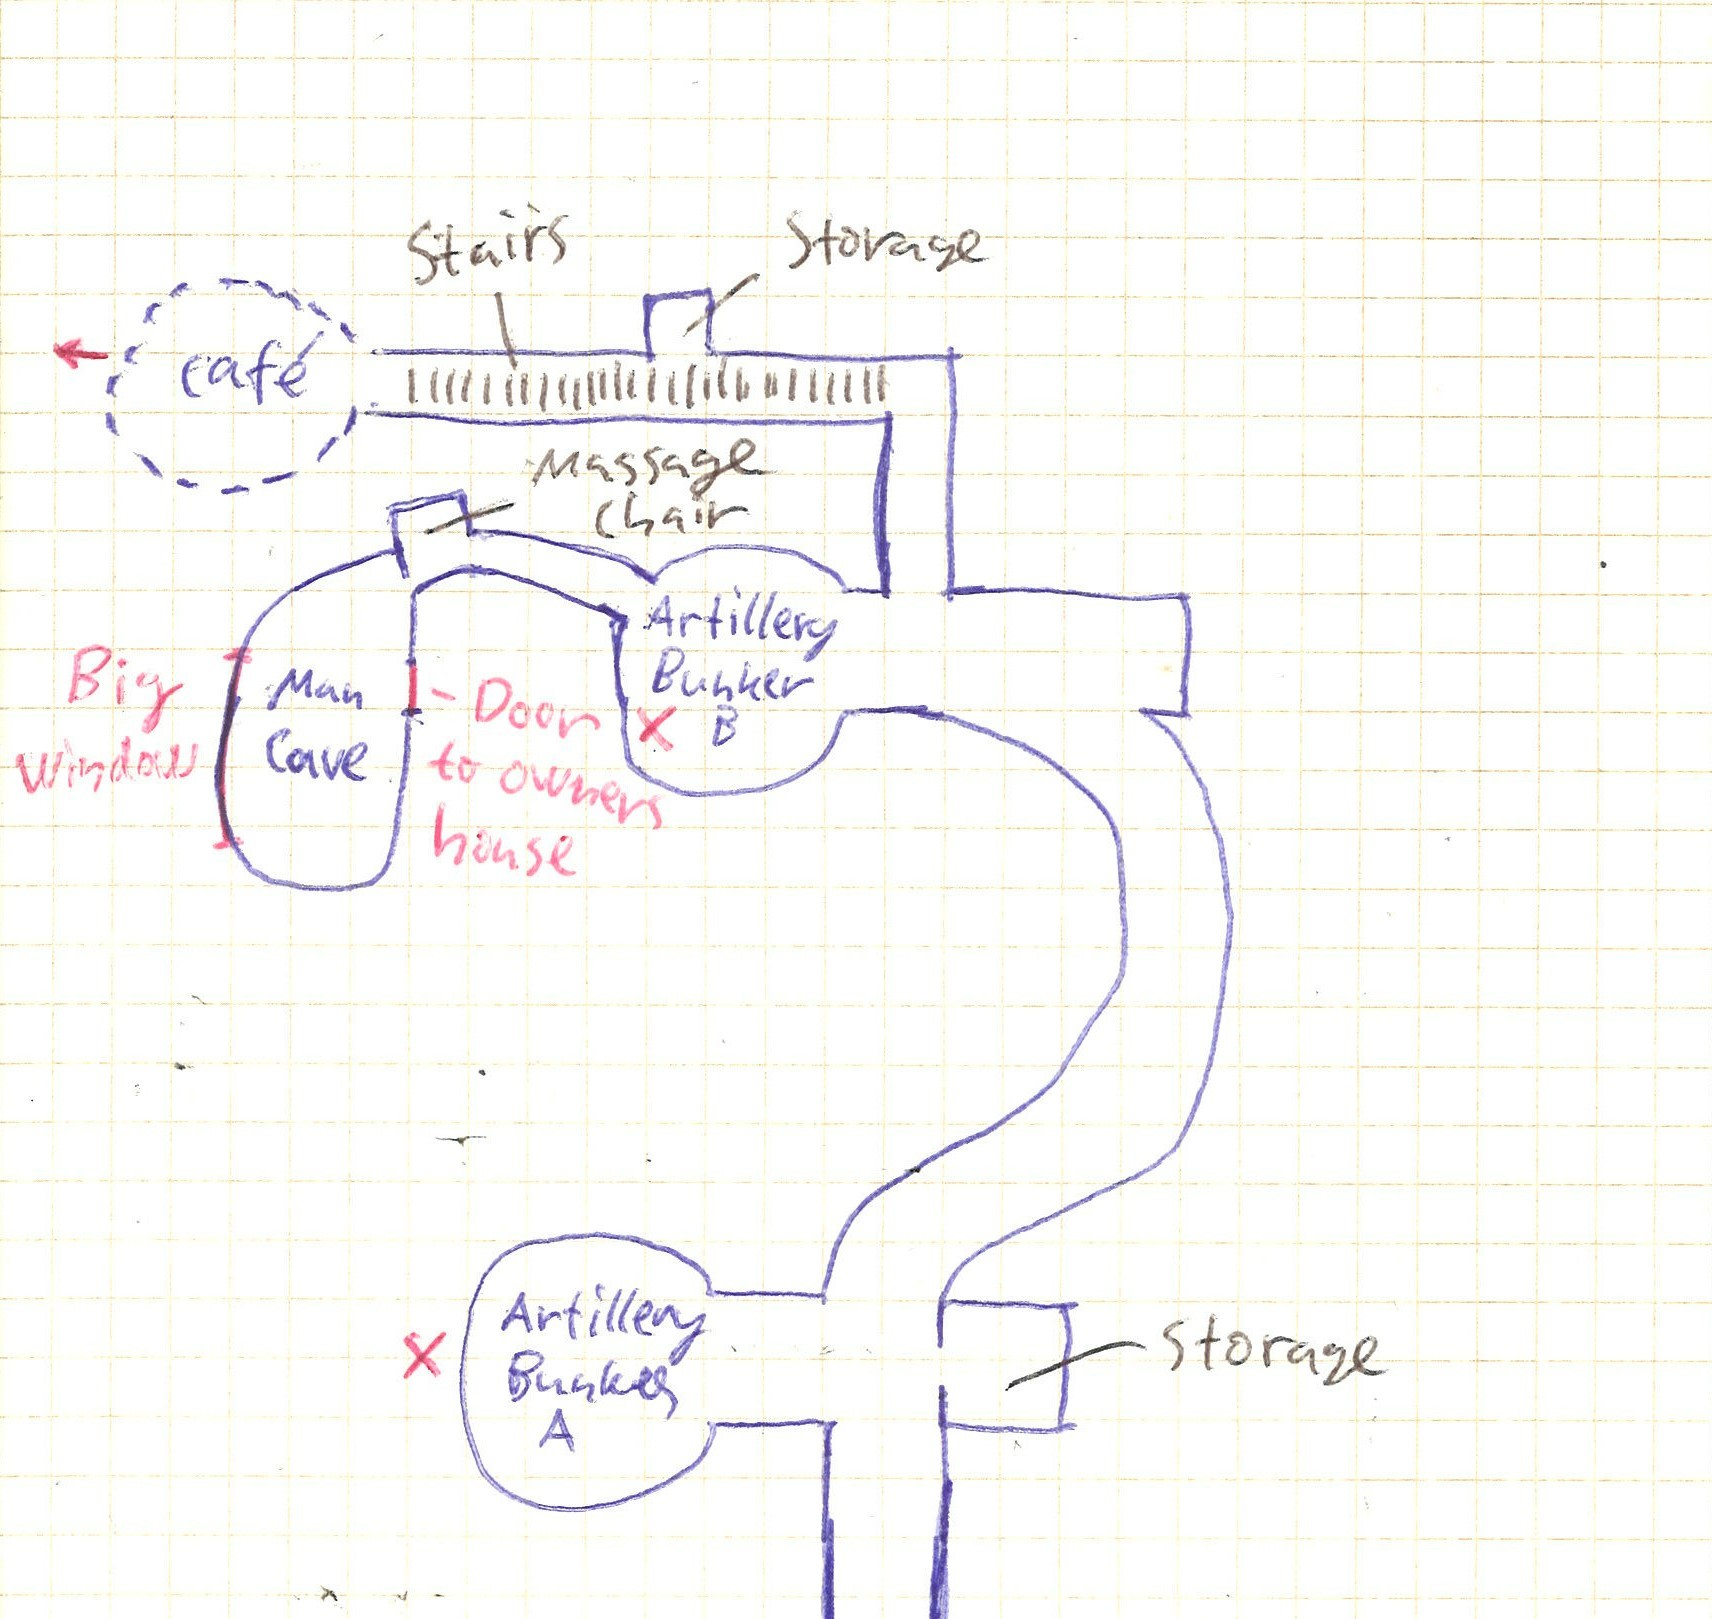 Stairs
Storage
café
Massage
Chair
Artillery
Bunker
B
X
Man
Cave
Big
Window
- Door
to owners
house
Artillery
Bunker
A
X
Storage